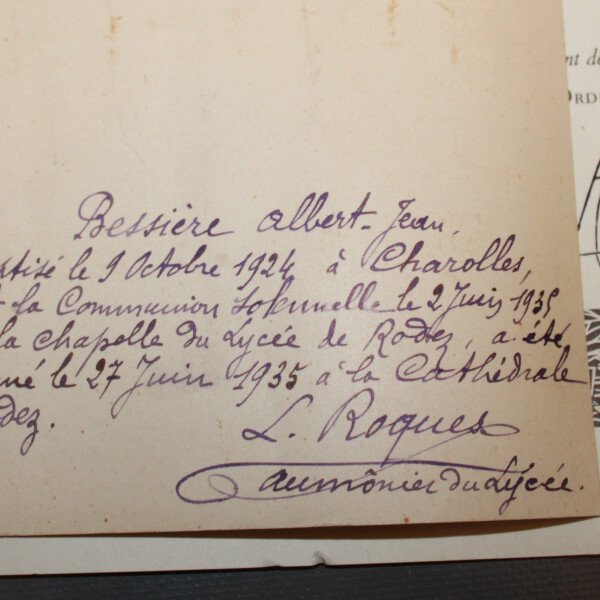 Bessière Albert-Jean.
ptisé le 9 Octobre 1924 à Charolles,
la Communion Solennelle le 2 Juin 1935
la chapelle du Lycée de Rodez, a été
mé le 27 Juin 1935 à la Cathédrale
dez.
L. Roques
aumônier du Lycée.
nt de
ORD